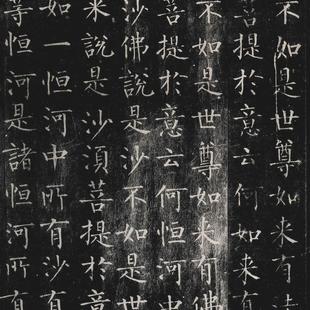 不如是世尊如来有法
菩提於意云何如来有
不如是世尊如来有佛
菩提於意云何恒河中
沙佛說是沙不如是世
来說是沙湏菩提於意
如一恒河中所有沙有
等恒河是諸恒河所有